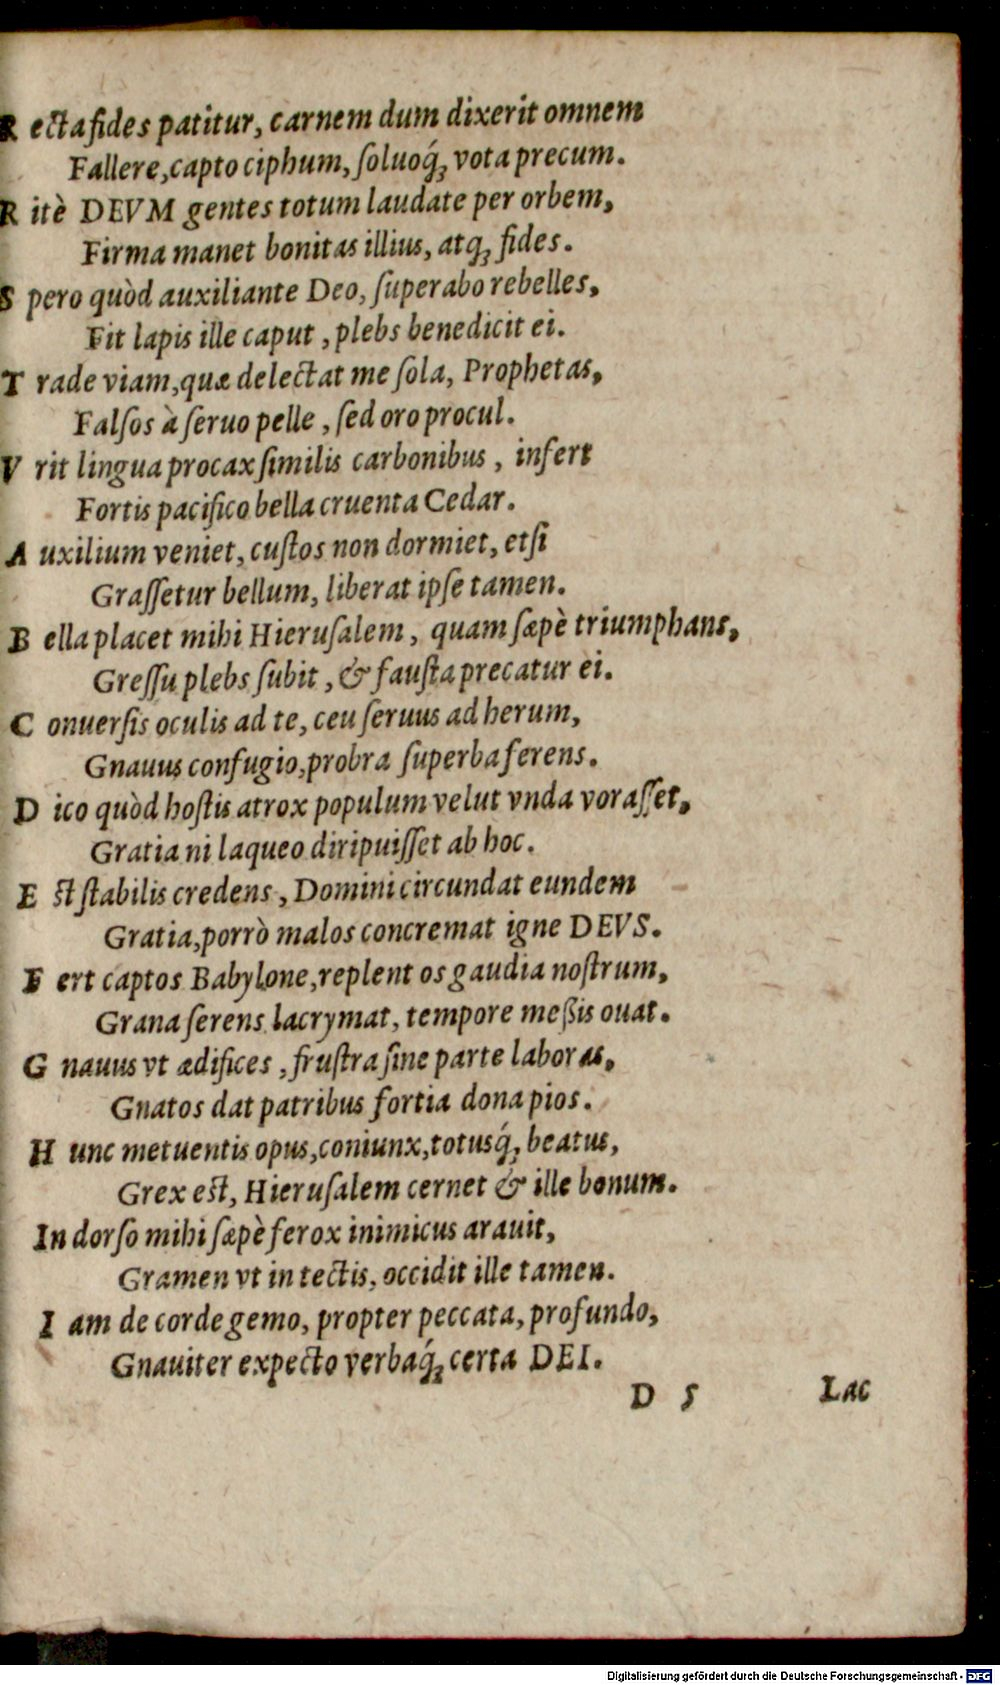 R ecta fides patitur, carnem dum dixerit omnem
Fallere, capto ciphum, ſoluoq́ꝫ vota precum.
R itè DEVM gentes totum laudate per orbem,
Firma manet bonitas illius, atqꝫ fides.
S pero quòd auxiliante Deo, ſuperabo rebelles,
Fit lapis ille caput, plebs benedicit ei.
T rade viam, quæ delectat me ſola, Prophetas,
Falſos à ſeruo pelle, ſed oro procul.
V rit lingua procax ſimilis carbonibus, infert
Fortis pacifico bella cruenta Cedar.
A uxilium veniet, cuſtos non dormiet, etſi
Graſſetur bellum, liberat ipſe tamen.
B ella placet mihi Hieruſalem, quam ſæpè triumphans,
Greſſu plebs ſubit, & fauſta precatur ei.
C onuerſis oculis ad te, ceu ſeruus ad herum,
Gnauus confugio, probra ſuperba ferens.
D ico quòd hoſtis atrox populum velut vnda voraſſet,
Gratia ni laqueo diripuiſſet ab hoc.
E ſt ſtabilis credens, Domini circundat eundem
Gratia, porrò malos concremat igne DEVS.
F ert captos Babylone, replent os gaudia noſtrum,
Grana ſerens lacrymat, tempore meßis ouat.
G nauus vt ædifices, fruſtra ſine parte laboras,
Gnatos dat patribus fortia dona pios.
H unc metuentis opus, coniunx, totusq́ꝫ beatus,
Grex eſt, Hieruſalem cernet & ille bonum.
In dorſo mihi ſæpè ferox inimicus arauit,
Gramen vt in tectis, occidit ille tamen.
I am de corde gemo, propter peccata, profundo,
Gnauiter expecto verbaq́ꝫ certa DEI.
D 5 Lac
Digitalisierung gefördert durch die Deutsche Forschungsgemeinschaft - DFG